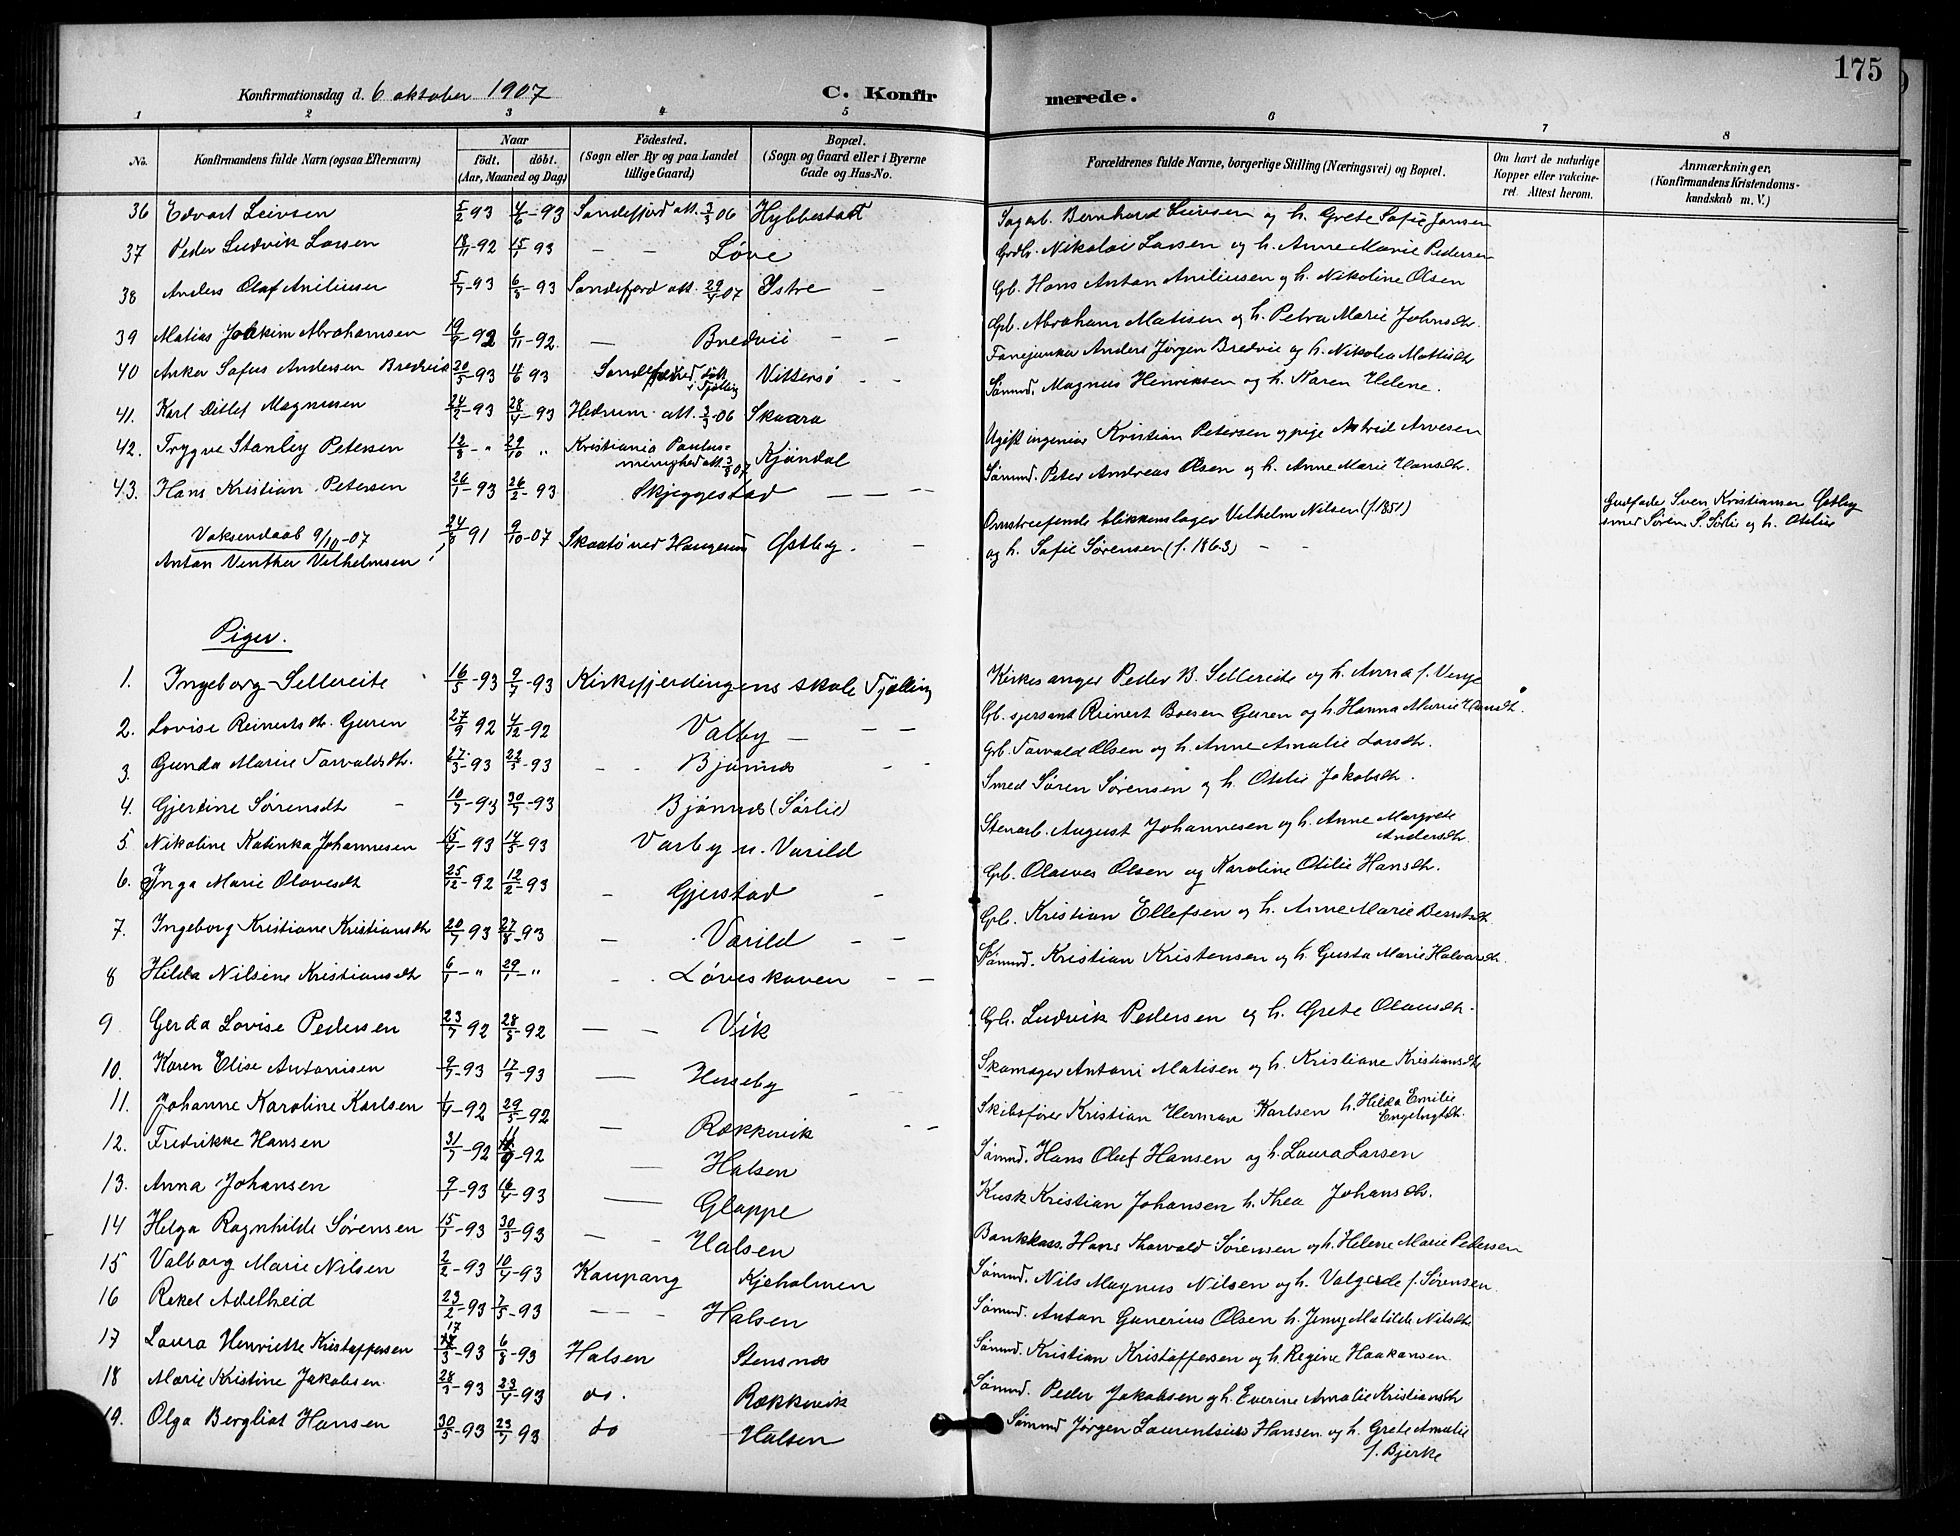 175
Konfirmationsdag d. 6 oktober 1907 C. Konfirmerede.
1 2 3 4 5 6 7 8
No. Konfirmandens fulde Navn (ogsaa Efternavn) Naar födt. döbt. (Aar, Maaned og Dag) Födested. (Sogn eller By og paa Landet tillige Gaard) Bopæl. (Sogn og Gaard eller i Byerne Gade og Hus-No. Forældrenes fulde Navne, borgerlige Stilling (Næringsvei) og Bopæl. Om havt de naturlige Kopper eller vakcineret. Attest herom. Anmærkninger. (Konfirmandens Kristendomskundskab m. V.)
36 Edvart Leivsen 5/2 93 4/6-93 Sandefjord att. 3/3 06 Hybbestad Sagarb. Bernhard Leivsen og h. Grete Sofie Jansen
37 Peder Ludvik Larsen 18/11-92 15/1 93 — — Løve Grdbr. Nikolai Larsen og h. Anne Marie Pedersen
38 Anders Olaf Aniliusen 5/7-93 6/8 93 Sandefjord att. 29/4 07 Istre — Gb. Hans Anton Aniliusen og h. Nikoline Olsen
39 Matias Joakim Abrahamsen 19/9-92 6/11-92. — Bredvei — — Gb. Abraham Matisen og h. Petra Marie Johnsdt.
40 Anker Sofus Andersen Bredvei 20/5-93 4/6 93 Sandefjord, døbt i Tjølling Vittersö — — Fanejunker Anders Jørgen Bredvei og h. Nikolea Mattisdt
41. Karl Ditlef Magnusen 24/2-93 28/4-93 Hedrum att. 3/3 06 Skaara Sømd. Magnus Henriksen og h. Karen Helene.
42. Trygve Stanley Petersen 12/8 - " 29/10 " Kristiania Paulusmenighed att. 3/3 07 Kjøndal Ugift ingeniør Kristian Petersen og pige Astrid Arvesen
43. Hans Kristian Petersen 26/1-93 26/2-93 Skjeggestad — — — Sømd. Peter Andreas Olsen og h. Anne Marie Hansdt.
Voksendaab 9/10-07 24/3 91 9/10-07 Skaatö ved Østby. — Omstreifende blikkenslager Vilhelm Nilsen (f. 1851) Gudfadr Sven Kristiansen Østby
Anton Venther Vilhelmsen og h. Sofie Sørensen (f. 1863) — — smed Søren S. Sørlie og h. Otilie
Piger.
1. Ingeborg Sellereite 16/5-93 9/7-93 Kirkefjerdingens skole Tjølling Kirkesanger Peder B. Sellereite og h. Anna f. Venge
2. Lovise Reinertsdt. Guren 27/9 92 4/12-92 Valby — — — Gb. sjersant Reinert Boesen Guren og h. Hanna Marie Hansdt.
3. Gunda Marie Torvaldsdt. 27/3-93 22/5-93 - - Bjønnes - - Gb. Torvald Olsen og h. Anne Amalie Larsdt.
4. Gjertine Sørensdt - 10/7-93 30/7-93 Bjønnes (Sørlie) Smed Søren Sørensen og h. Otilie Jakobsdt.
5. Nikoline Katinka Johannesen 15/4-93 14/5-93 Varby u. Varild Stenarb. August Johannesen og h. Anne Margrete Andersdt.
6. Inga Marie Olavesdt 25/12-92 12/2-93 - Gjerstad - Gb. Olaves Olsen og Karoline Otilie Hansdt.
7. Ingeborg Kristiane Kristiansdt 20/7 93 27/8-93 — Varild — — Gb. Kristian Ellefsen og h. Anne Marie Berntsdt.
8 Hilda Nilsine Kristiansdt 6/1 - " 29/1 - " - - Løveskaven — — Sømd. Kristian Kristensen og h. Gusta Marie Halvorsdt.
9 Gerda Lovise Pedersen 23/7 92 28/8-92 — — Vik Gb. Ludvik Pedersen og h. Grete Olausdt.
10. Karen Elise Antonisen 9/7-93 17/9-93 — Huseby - - Skomager Antoni Matisen og h. Kristiane Kristiansdt
11. Johanne Karoline Karlsen 1/4-92 29/5-92 — Rækkevik - - Skibsfører Kristian Herman Karlsen h. Hilda Emilie Engebrigtsdt.
12. Fredrikke Hansen 31/7-92 11/9-92 — Halsen Sømd. Hans Oluf Hansen og h. Laura Larsen
13. Anna Johansen 9/1-93 16/4-93 — Gloppe Kusk Kristian Johansen h. Thea Johansdt.
14 Helga Ragnhilde Sørensen 15/1-93 30/3-93 - - Halsen Bankkass. Hans Thorvald Sørensen og h. Helene Marie Pedersen
15 Valborg Marie Nilsen 2/2-93 10/4-93 Kaupang Kjeholmen Sømd. Nils Magnus Nilsen og h. Valgerde f. Sørensen
16 Rakel Adelheid 23/2-93 7/5-93 — — Halsen Sømd. Anton Gunerius Olsen h. Jenny Matilde Nilsdt
17 Laura Henriette Kristoffersen 17/3-93 6/8-93 Halsen Stensnes Sømd. Kristian Kristoffersen og h. Regine Haakansen.
18 Marie Kristine Jakobsen 28/1-93 23/4-93 do. Rækkevik Sømd. Peder Jakobsen og h. Everine Amalie Kristiansdt
19. Olga Bergliot Hansen 30/5-93 23/7 93 do Halsen Sømd Jørgen Laurentsius Hansen og h. Grete Amalie
f. Bjerke